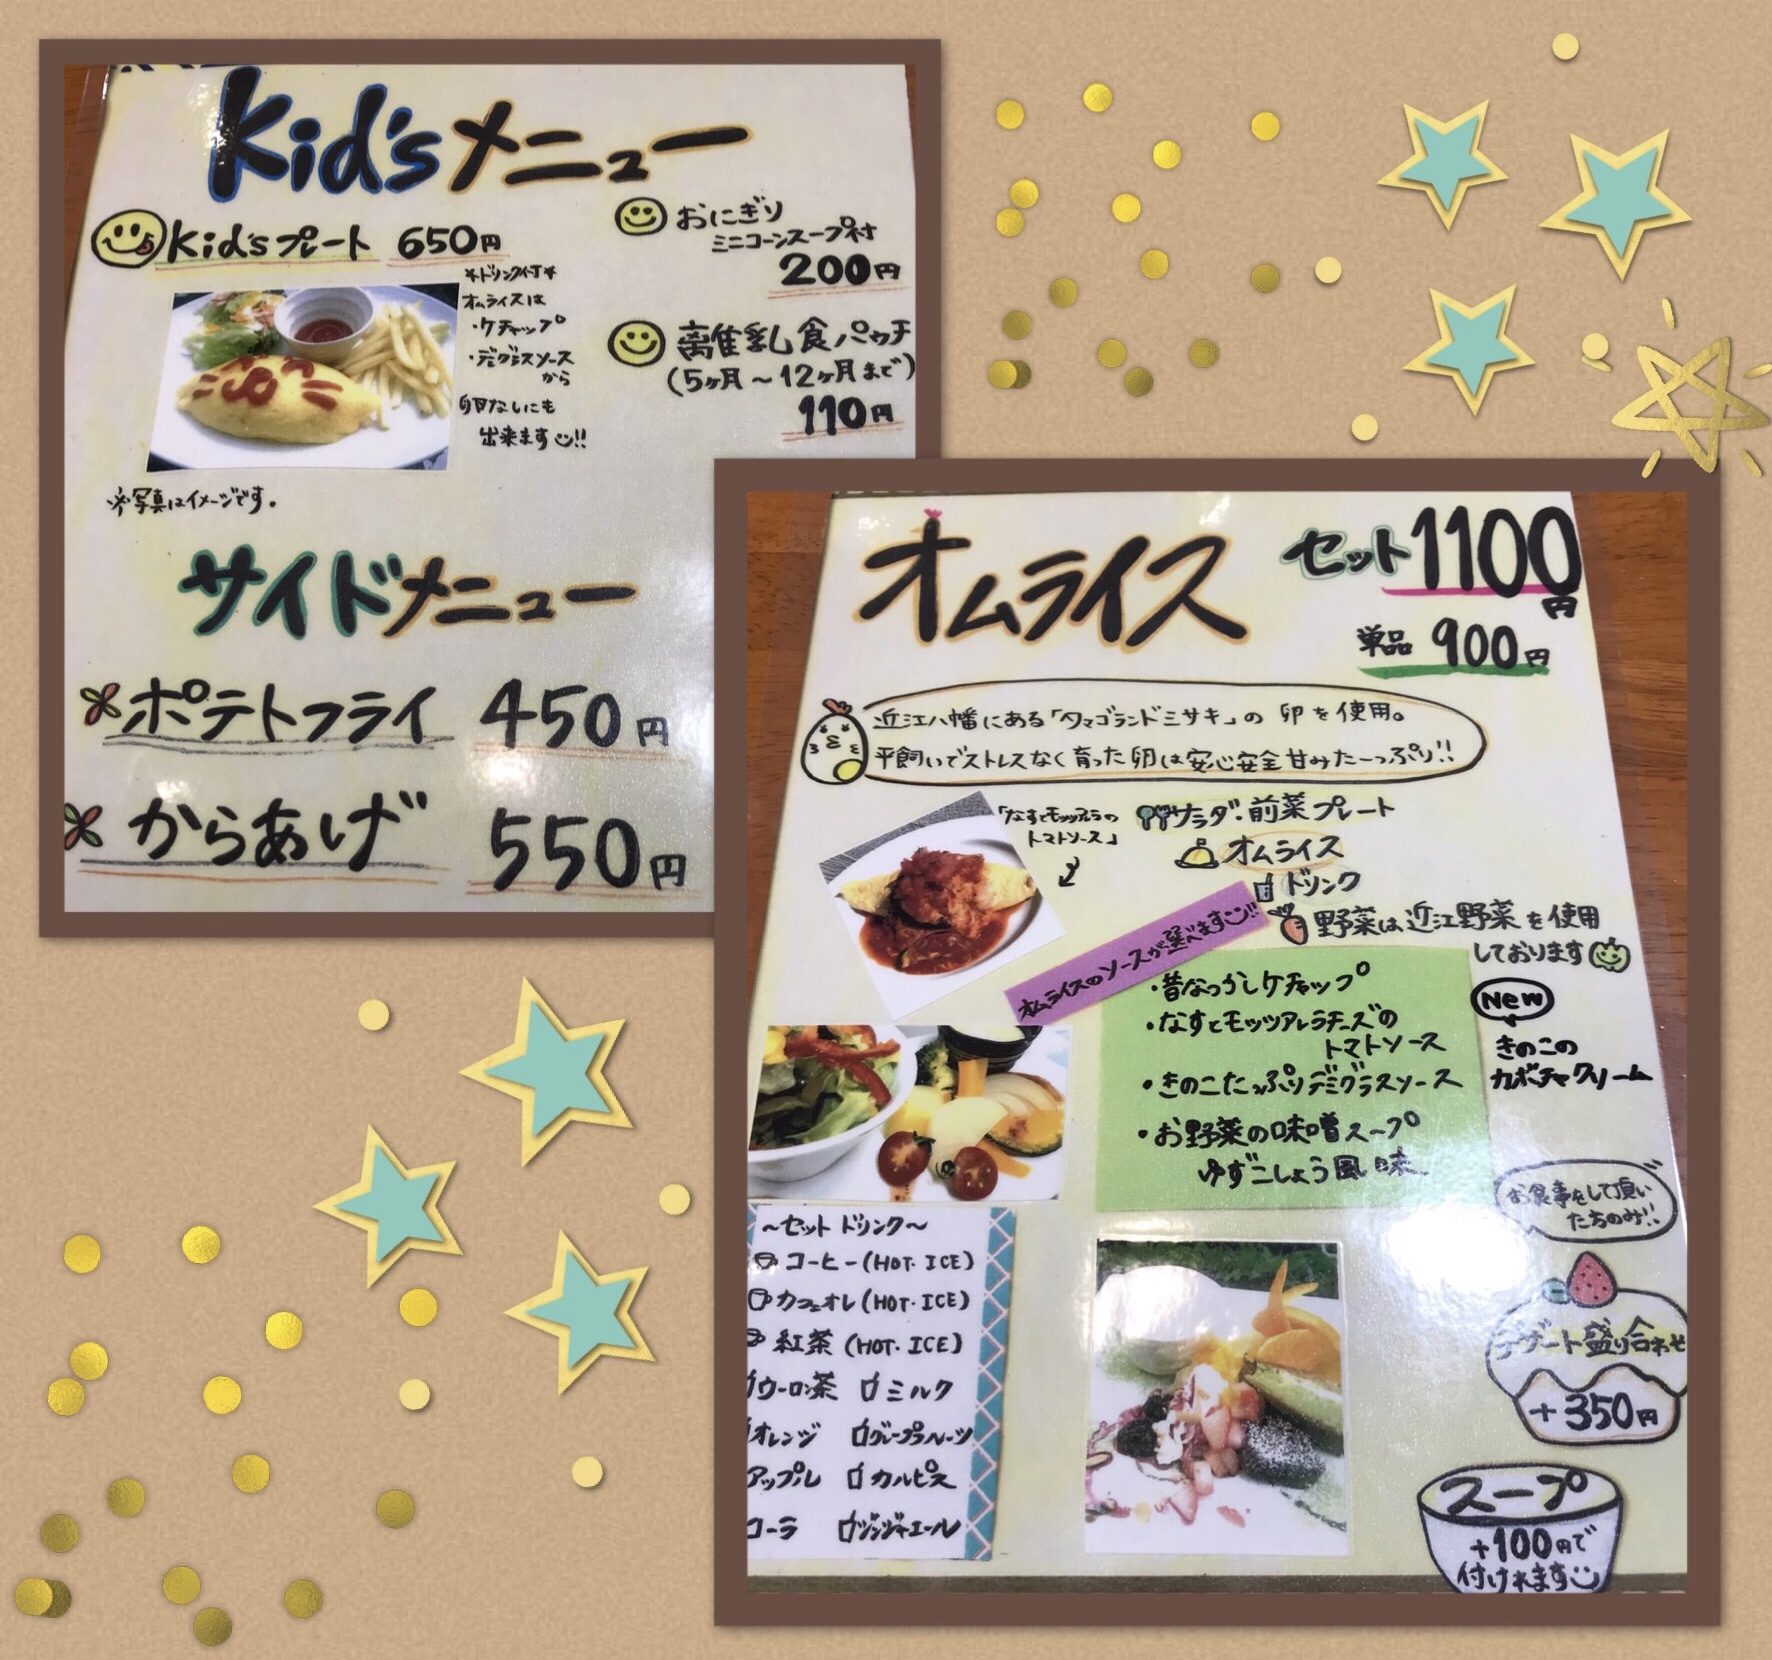 Kid'sメニュー
Kid'sプレート 650円
*ドリンク付*
オムライスは
・ケチャップ
・デミグラスソース
から
卵なしにも
出来ます!!
※写真はイメージです。
おにぎり
ミニコーンスープ付
200円
離乳食パウチ
(5ヶ月～12ヶ月まで)
110円
サイドメニュー
ポテトフライ 450円
からあげ 550円
オムライス
セット1100円
単品 900円
近江八幡にある「タマゴランドミサキ」の 卵を使用。
平飼いでストレスなく育った卵は安心安全甘みたーっぷり!!
「なすとモッツァレラの
トマトソース」
サラダ・前菜プレート
オムライス
ドリンク
野菜は近江野菜を使用
しております
オムライスのソースが選べます!!
・昔なつかしケチャップ
・なすとモッツァレラチーズの
トマトソース
・きのこたっぷりデミグラスソース
・お野菜の味噌スープ
ゆずこしょう風味
New
きのこの
カボチャクリーム
～セットドリンク～
コーヒー(HOT・ICE)
カフェオレ(HOT・ICE)
紅茶(HOT・ICE)
ウーロン茶 ミルク
オレンジ グレープフルーツ
アップル カルピス
コーラ ジンジャエール
お食事をして頂い
たちのみ!!
デザート盛り合わせ
+350円
スープ
+100円で
付けれます